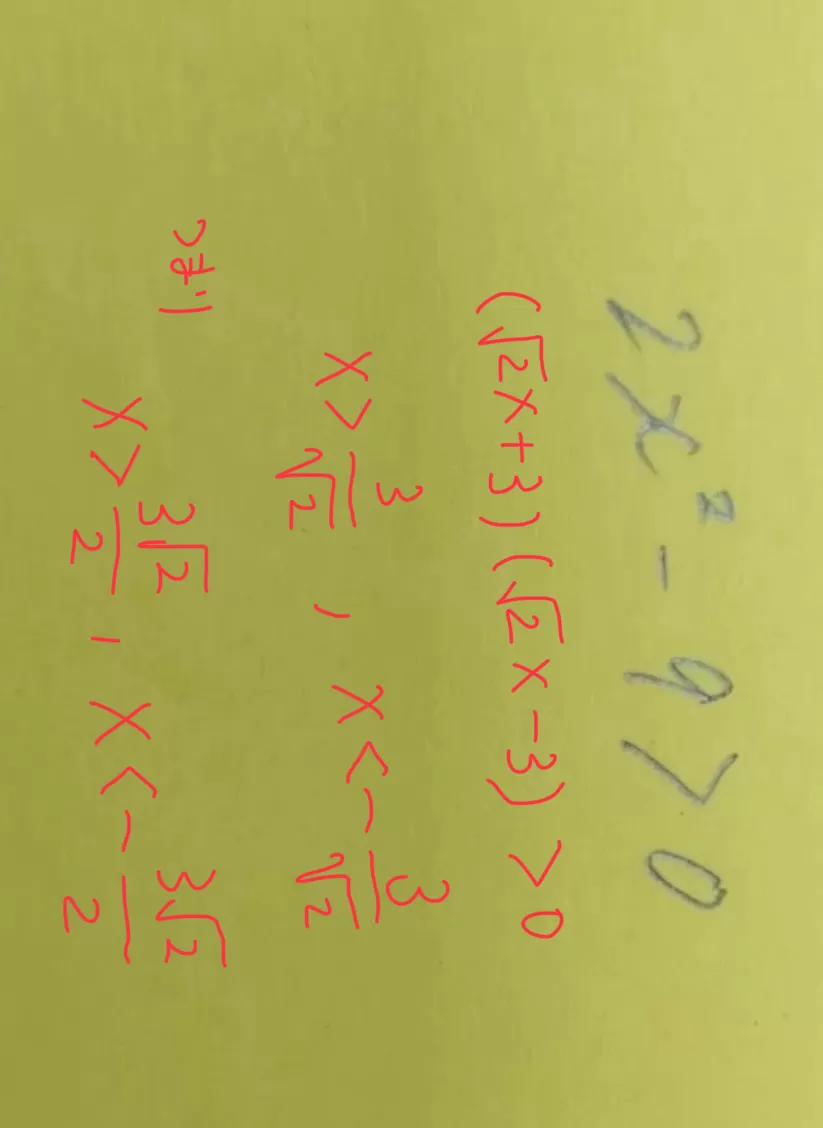 2x² - 9 > 0
(√2x+3)(√2x-3) > 0
x > 3/√2 , x < - 3/√2
つまり
x > 3√2/2 , x < - 3√2/2